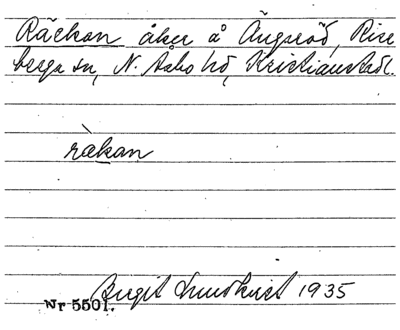 Räckan åker å Ängsröd, Rise
berga sn, N. Åsbo hd, Kristianstadl.
ràkan
Birgit Lundkvist 1935
Nr 5501.